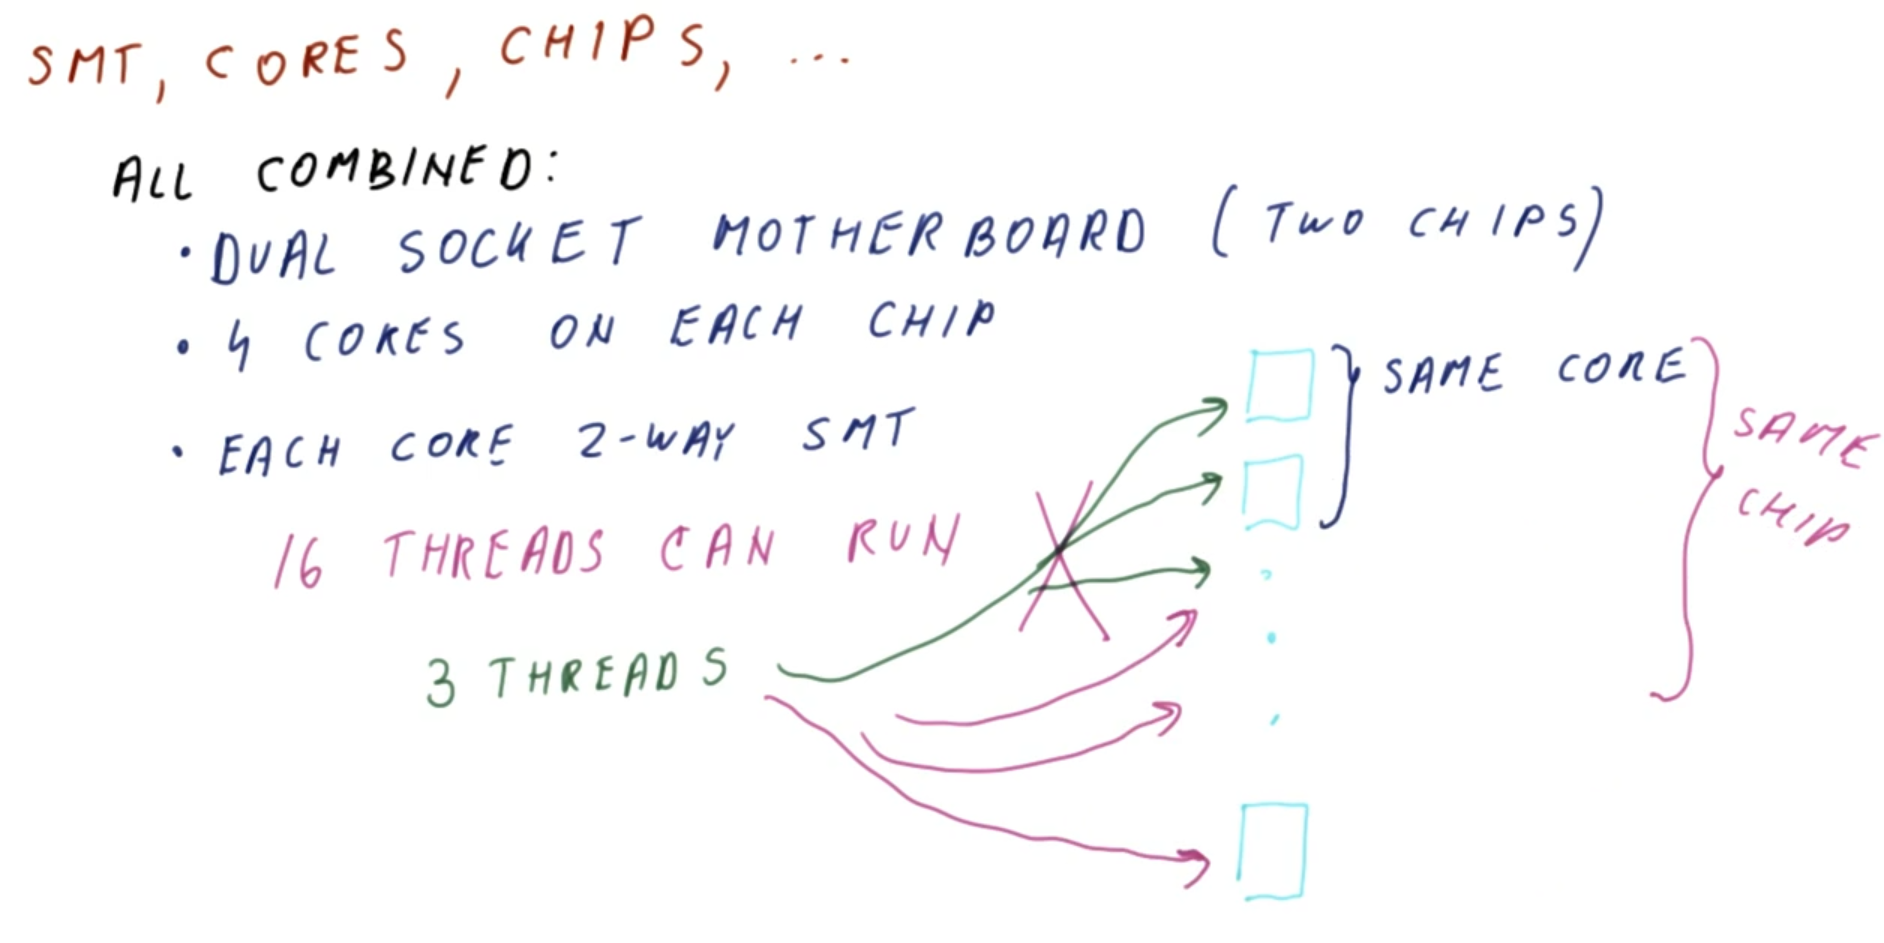 SMT, CORES, CHIPS, ...
ALL COMBINED:
• DUAL SOCKET MOTHERBOARD (TWO CHIPS)
• 4 CORES ON EACH CHIP
• EACH CORE 2-WAY SMT
16 THREADS CAN RUN
3 THREADS
SAME CORE
SAME
CHIP